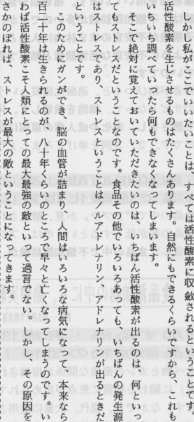 しかし私がここでいいたいことは、すべては活性酸素に収斂されるということです。
活性酸素を生じさせるものはたくさんあります。自然にもできるくらいですから、これも
いちいち調べていったら何もできなくなってしまいます。
そこで絶対に覚えておいていただきたいのは、いちばん活性酸素が出るのは、何といっ
てもストレスだということなのです。食品その他でいろいろあっても、いちばんの発生源
はストレスであり、ストレスということはノルアドレナリン、アドレナリンが出るときだ
ということです。
このためにガンができ、脳の血管が詰まり、人間はいろいろな病気になって、本来なら
百二十年は生きられるのが、八十年くらいのところで早々と亡くなってしまうのです。い
わば活性酸素こそ人類にとっての最大最強の敵といって過言でない。しかし、その原因を
さかのぼれば、ストレスが最大の敵ということになってきます。